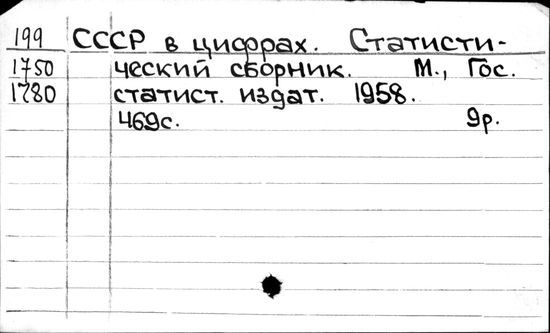 199 СССР в цифрах. Статисти-
1750 ческий сборник. М., Гос.
1780 статист. издат. 1958.
469с. 9р.